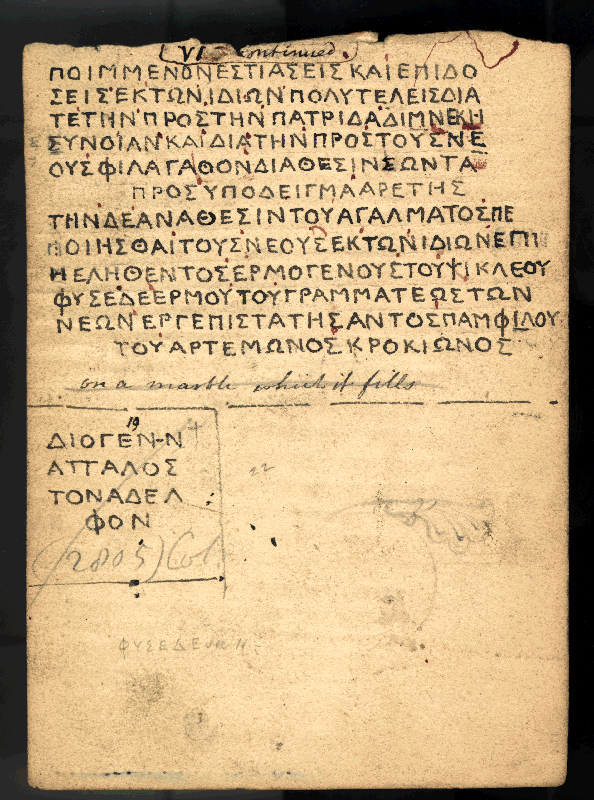 (VI continued.)
ΠΟΙΜΜΕΝΟΝΕΣΤΙΑΣΕΙΣΚΑΙΕΠΙΔΟ
ΣΕΙΣΕΚΤΩΝΙΔΙΩΝΠΟΛΥΤΕΛΕΙΣΔΙΑ
ΤΕΤΗΝΠΡΟΣΤΗΝΠΑΤΡΙΔΑΔΙΜΝΕΚΗ
ΣΥΝΟΙΑΝΚΑΙΔΙΑΤΗΝΠΡΟΣΤΟΥΣΝΕ
ΟΥΣΦΙΛΑΓΑΘΟΝΔΙΑΘΕΣΙΝΕΩΝΤΑ
ΠΡΟΣΥΠΟΔΕΙΓΜΑΑΡΕΤΗΣ
ΤΗΝΔΕΑΝΑΘΕΣΙΝΤΟΥΑΓΑΛΜΑΤΟΣΠΕ
ΠΟΙΗΣΘΑΙΤΟΥΣΝΕΟΥΣΕΚΤΩΝΙΔΙΩΝΕΠΙ
ΗΕΛΗΘΕΝΤΟΣΕΡΜΟΓΕΝΟΥΣΤΟΥΨΙΚΛΕΟΥ
ΦΥΣΕΔΕΕΡΜΟΥΤΟΥΓΡΑΜΜΑΤΕΩΣΤΩΝ
ΝΕΩΝΕΡΓΕΠΙΣΤΑΤΗΣΑΝΤΟΣΠΑΜΦΙΛΟΥ
ΤΟΥΑΡΤΕΜΩΝΟΣΚΡΟΚΙΩΝΟΣ
on a marble which it fills
19
ΔΙΟΓΕΝ-Ν
ΑΤΤΑΛΟΣ
ΤΟΝΑΔΕΛ
ΦΟΝ
(2805) Col.
22